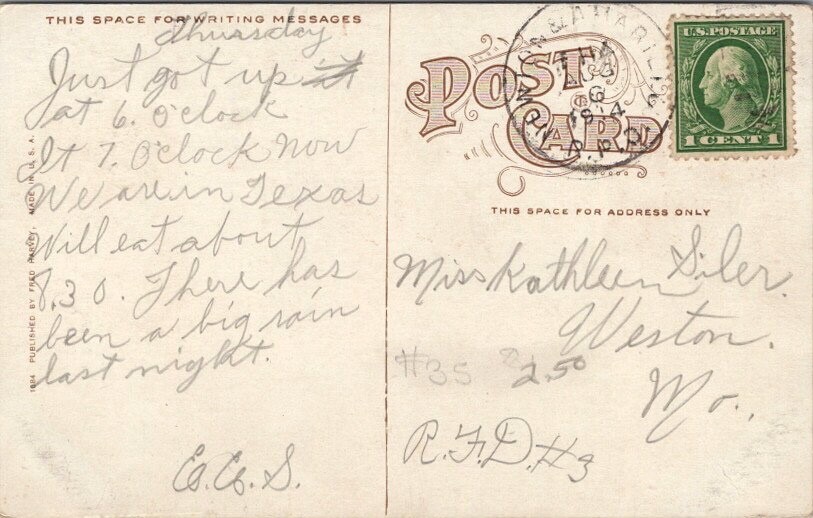 THIS SPACE FOR WRITING MESSAGES
Thursday
Just got up
at 6. O'clock
It 7. O'clock Now
We are in Texas
Will eat about
8,30. There has
been a big rain
last night.
E.E.S.
1884 PUBLISHED BY FRED HARVEY. MADE IN U.S.A.
POST CARD
AUG
6
1914
R.P.O.
U.S. POSTAGE
1 CENT 1
THIS SPACE FOR ADDRESS ONLY
Miss Kathleen Siler.
Weston.
#35 2.50
Mo.,
R.F.D. #3